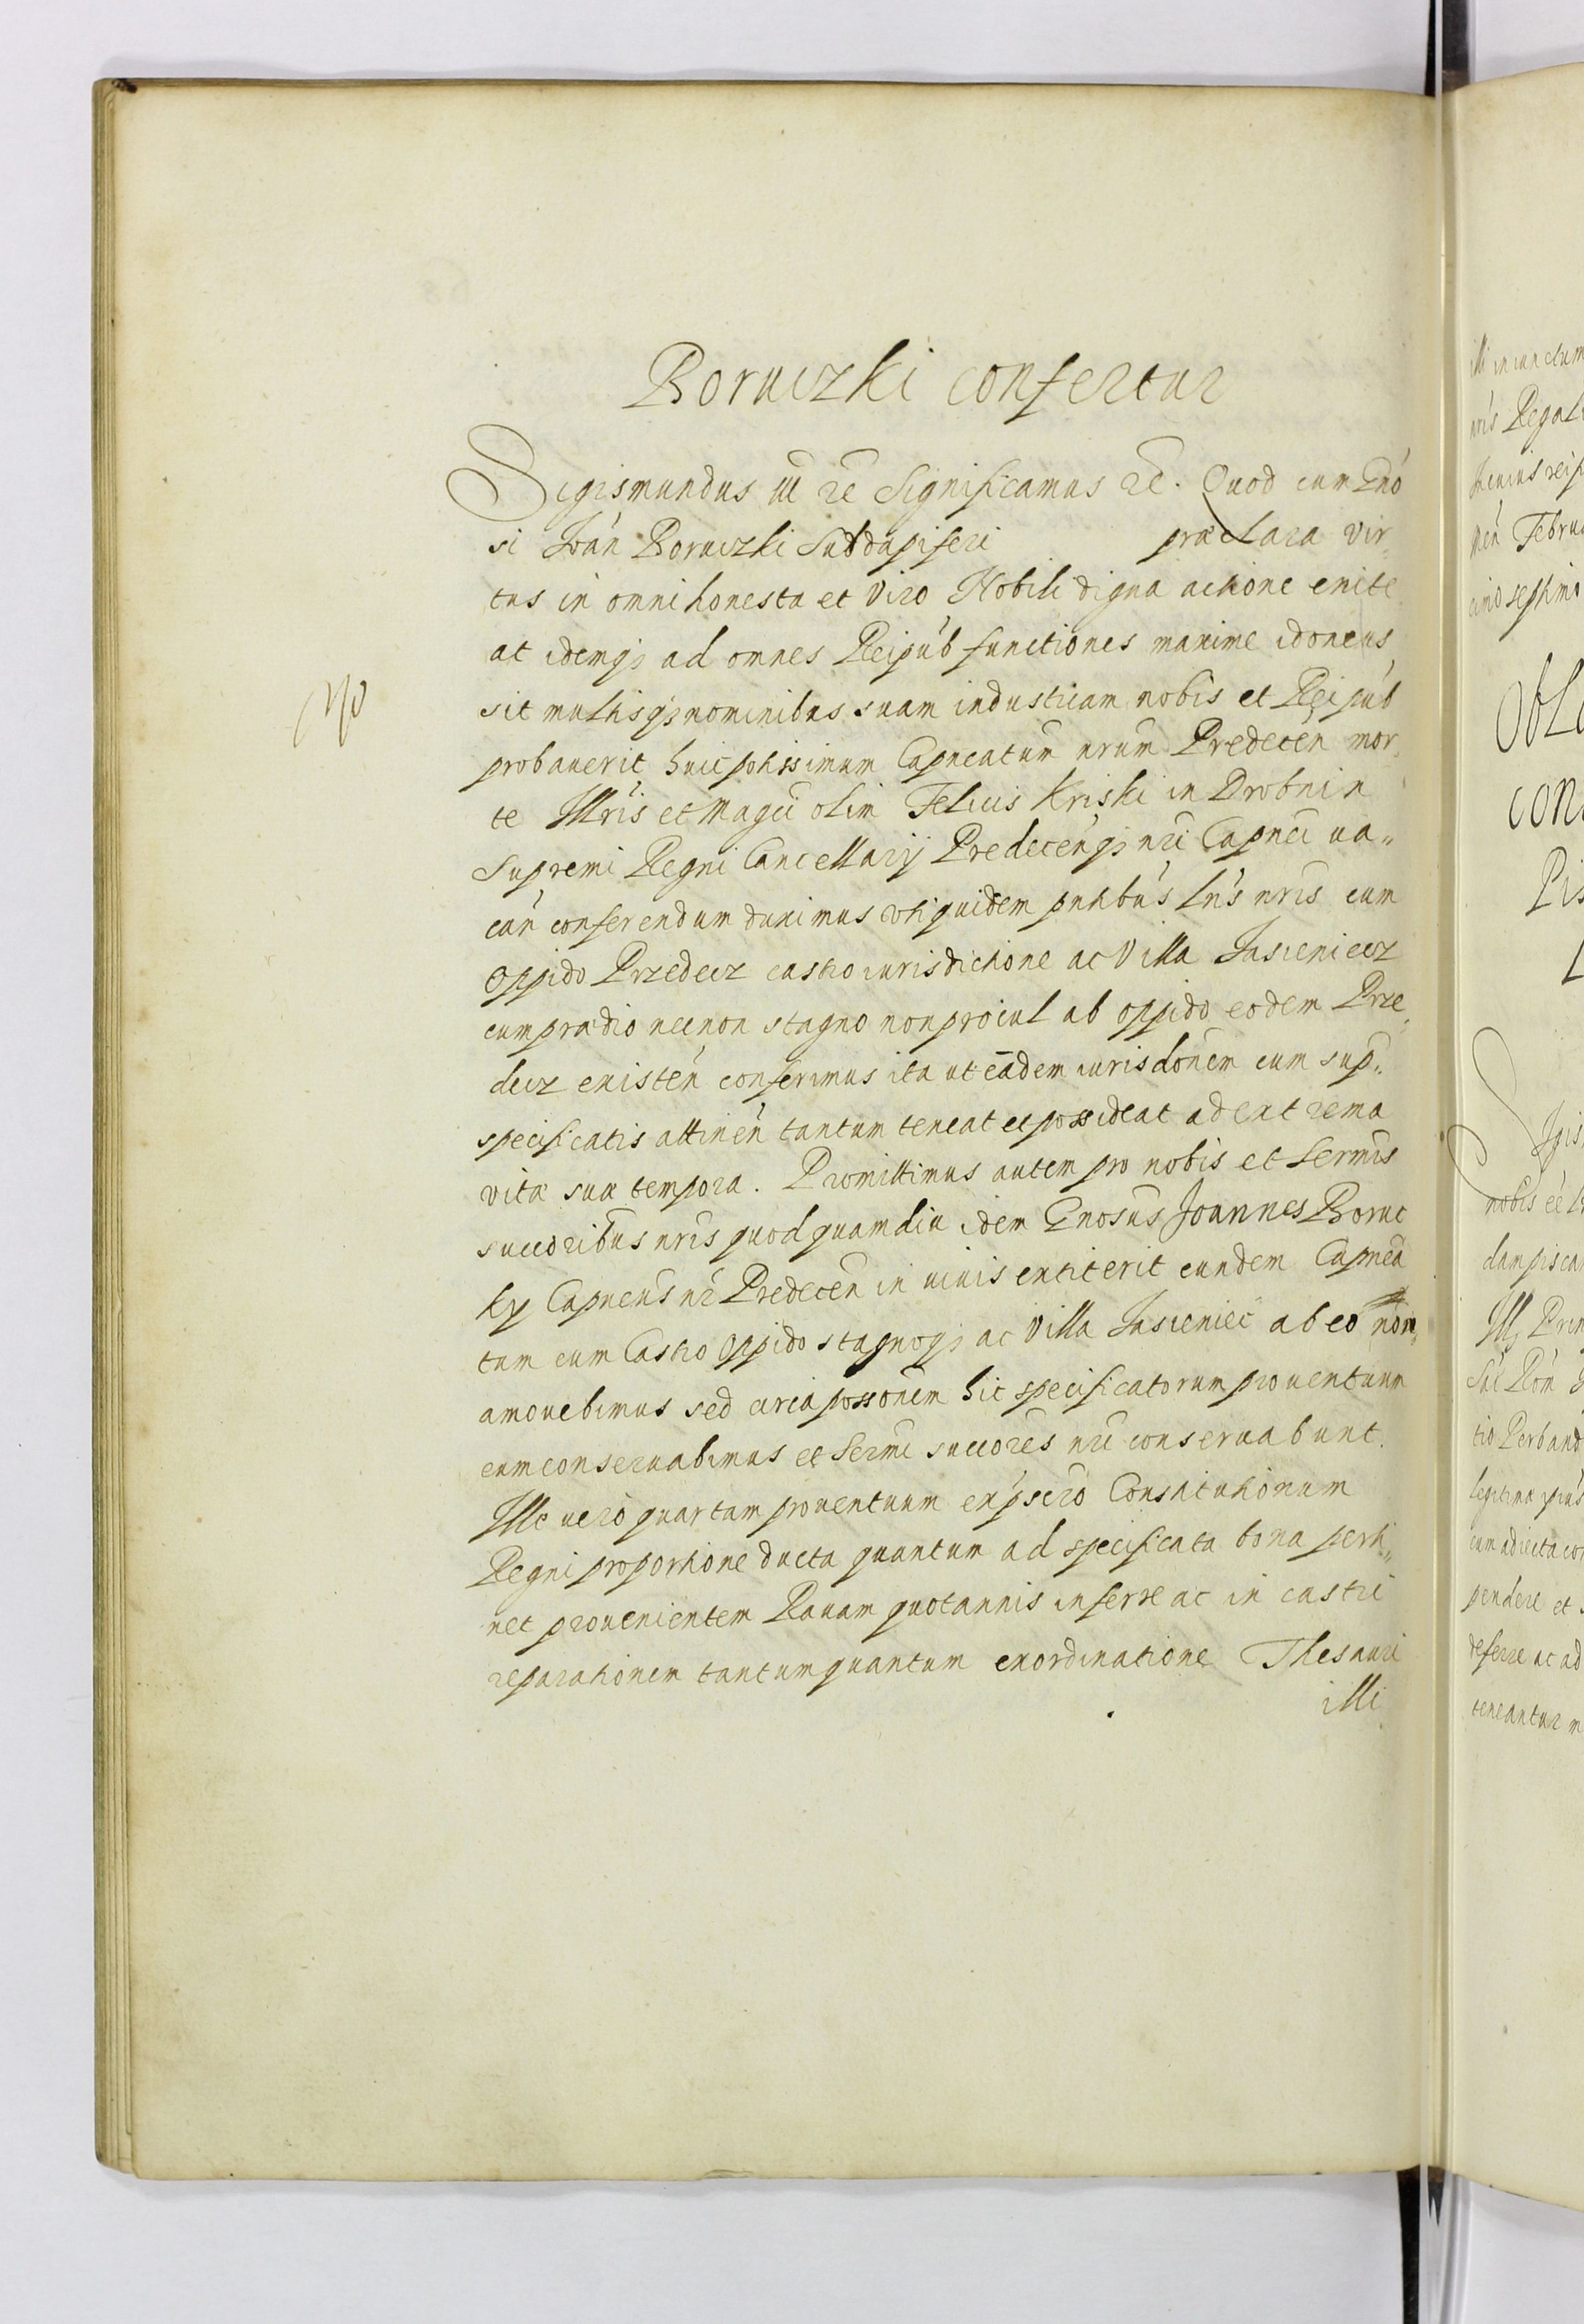 Boruczki confertur
Sigismundus III re Significamus re. Quod cum Gnō
si Ioān Boruczki Subdapiferi præclara vir
tus in omni honesta et Viro Nobili digna actione enite
at idemqȝ ad omnes Reipub functiones maxime idoneus
sit multisqȝ nominibus suam industriam nobis et Reipub
probauerit, huic potissimum Capneatum nrum Predecen mor
te Illris et Magci olim Felicis Kriski in Drobnin
Supremi Regni Cancellarij Predecenqȝ nri Capnei ua„
can conferendum duximus vti quidem pntibus lris nris cum
Oppido Przedecz castro iurisdictione ac Villa Jasieniecz
cum prædio necnon stagno non procul ab oppido eodem Prze
decz existen conferimus ita ut eādem iurisdonem cum sup„
specificatis attinen tantum teneat et possideat ad extrema
vitæ suæ tempora. Promittimus autem pro nobis et Sermis
succoribus nris quod quamdiu idem Gnosus Joannes Boruc
ky Capneus nr Predecen in uiuis extiterit eundem Capnea
tum cum Castro Oppido stagnoqȝ ac Villa Jasieniec ab eo non
amouebimus sed circa possonem hic specificatorum prouentuum
eum conseruabimus et Sermi succores nri conseruabunt.
Ille uero quartam prouentuum ex pscro Constitutionum
Regni proportione ducta quantum ad specificata bona perti„
net prouenientem Rauam quotannis inferre ac in castri
reparationem tantum quantum ex ordinatione Thesauri
illi
illi iniunctum
nris Regal
Febru
septimo
Obl
con
Pis
Sigis
nobis
dam piscar
Ill Prin
tio Perband
legitima
cum adiecta
pendere et
deferre ac ad
teneantur